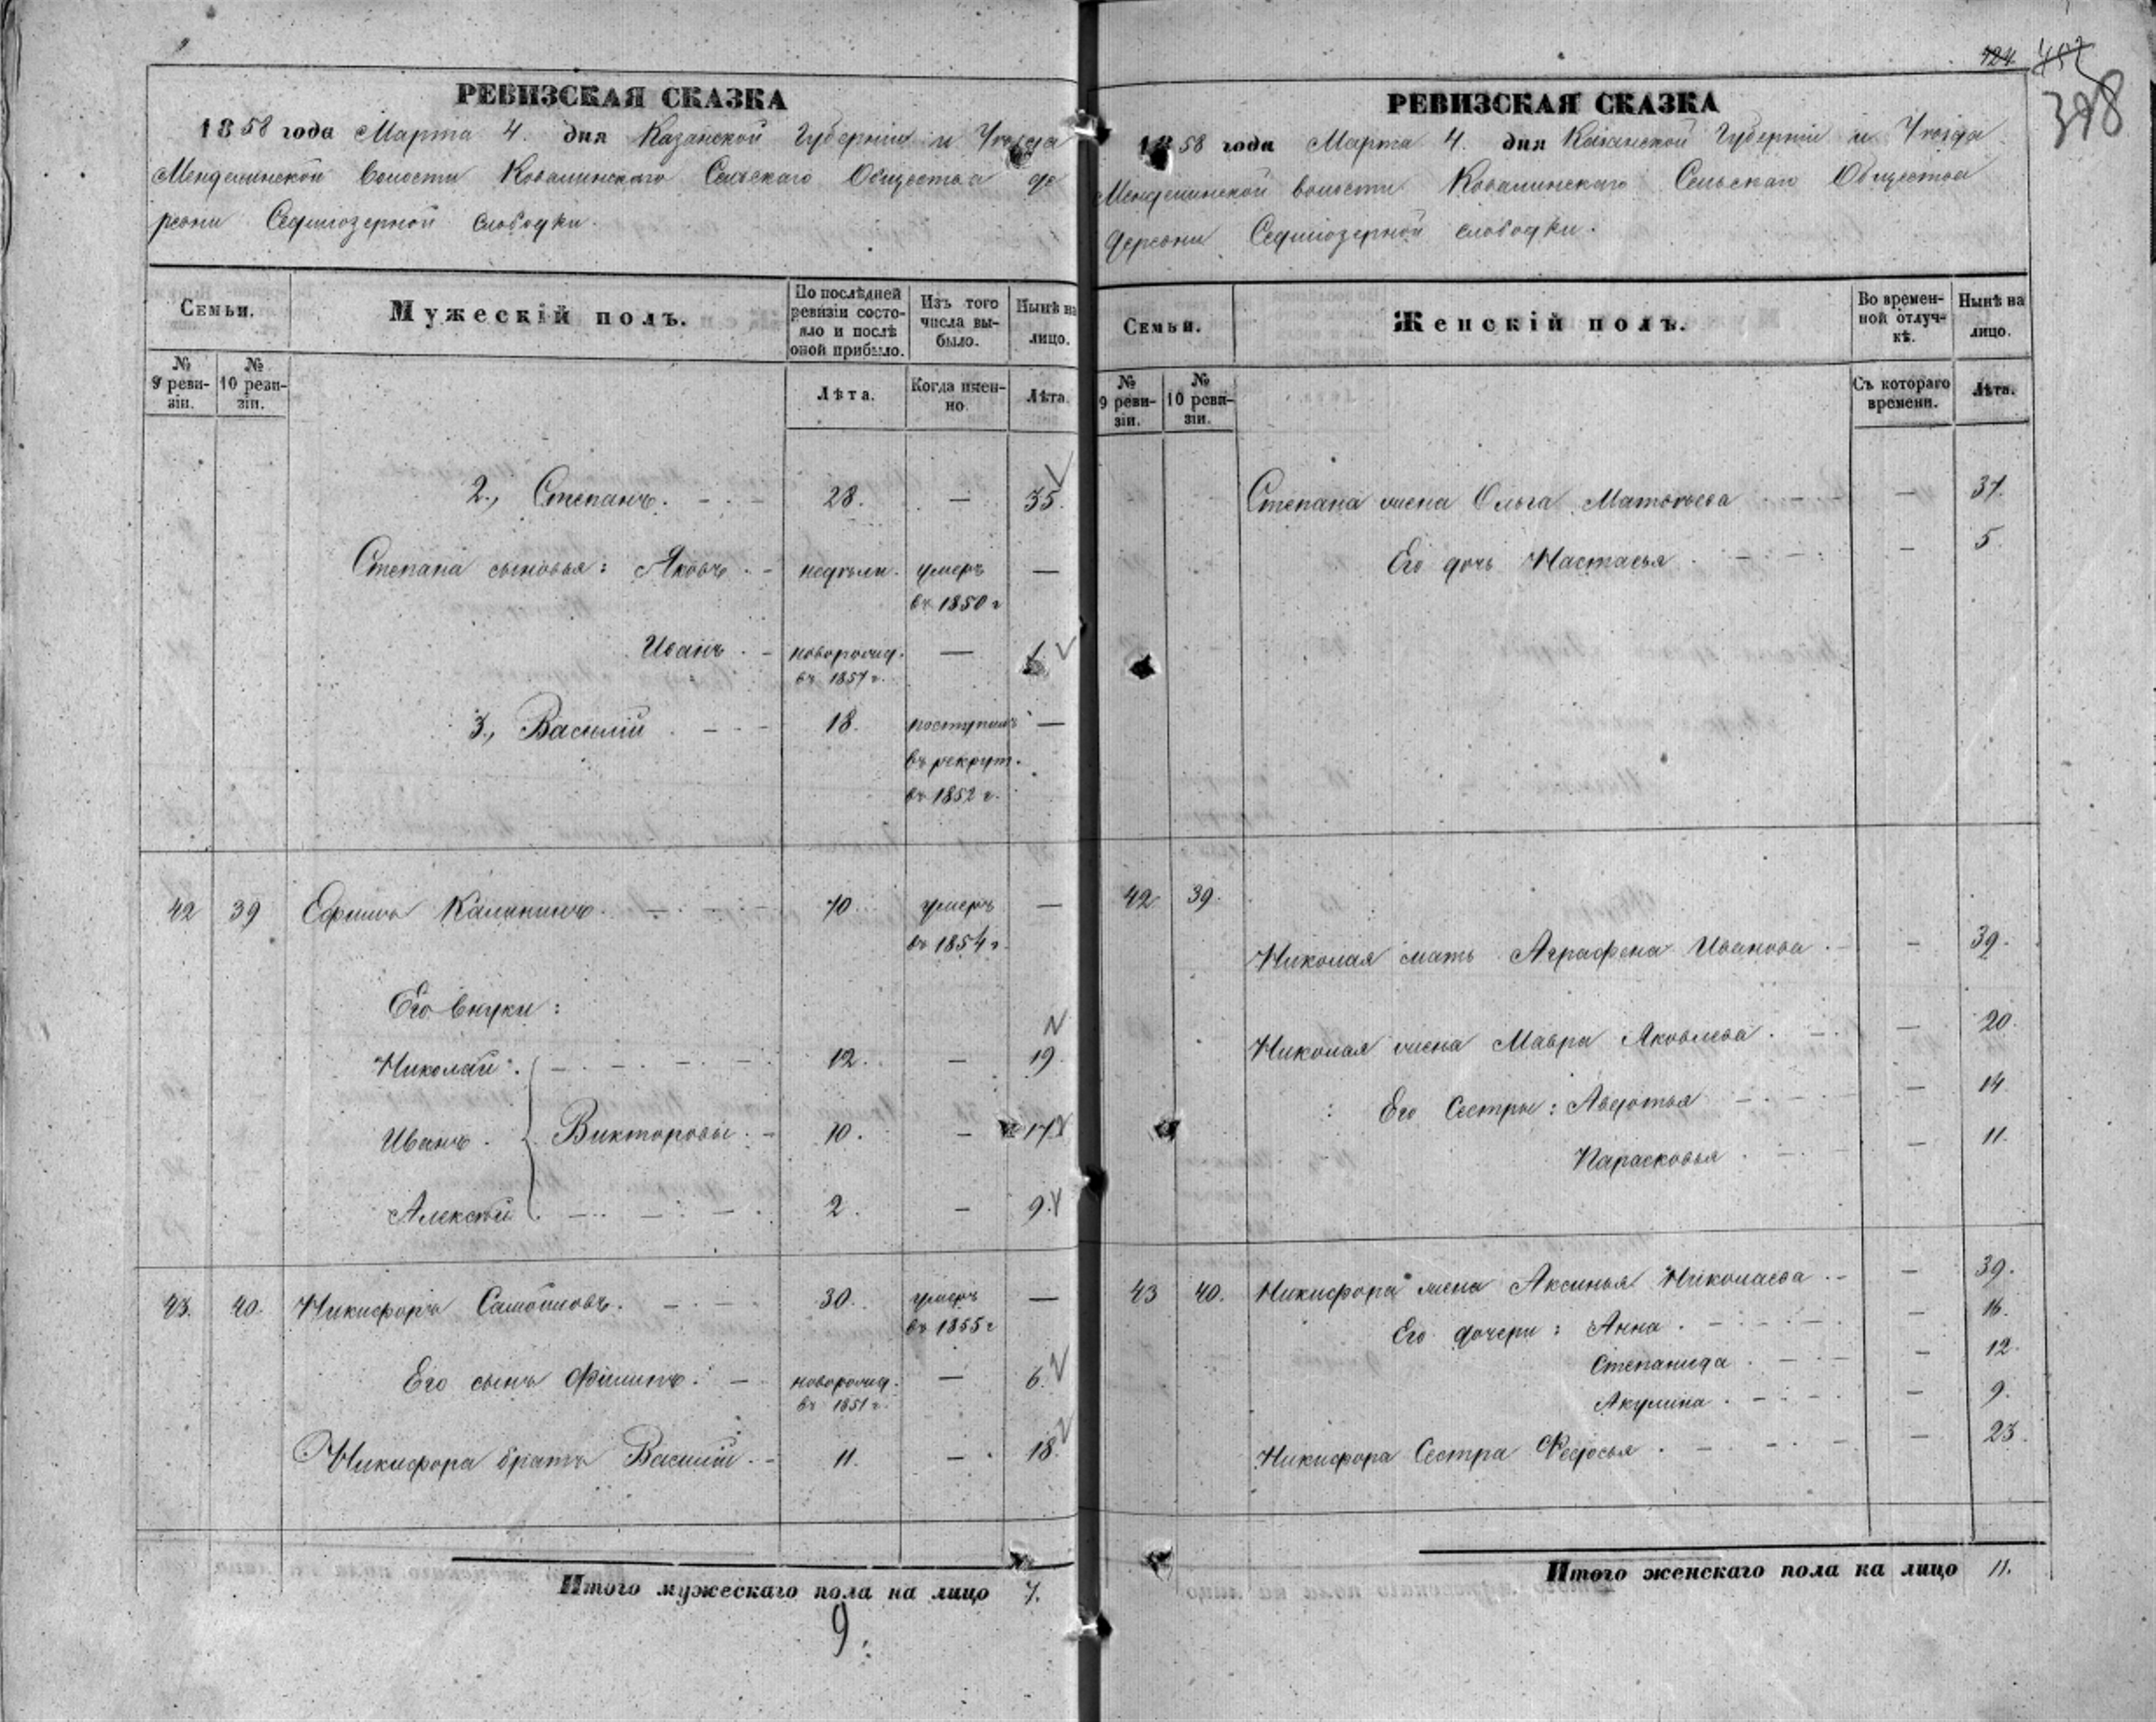 РЕВИЗСКАЯ СКАЗКА
1858 года Марта 4. дня Казанской Губерніи и Уѣзда
Менделинской волости Ковалинскаго Сельскаго Общества де
ревни Седміозерной слободки.
Семьи.
Мужескій полъ.
По послѣдней ревизіи состояло и послѣ оной прибыло.
Изъ того числа выбыло.
Нынѣ на лицо.
№ 9 ревизіи.
№ 10 ревизіи.
Лѣта.
Когда именно.
Лѣта.
2., Степанъ. 28. — 35.
Степана сыновья: Яковъ недѣли. умеръ —
въ 1850 г
Иванъ новорожд. — 1
въ 1857 г.
3., Василій 18. поступилъ —
въ рекрут.
въ 1852 г.
42 39 Ефимъ Калининъ. 70. умеръ —
въ 1854 г.
Его внуки:
Николай. 12. — 19.
Иванъ. Викторовы. 10. — 17
Алексѣй 2. — 9.
43. 40. Никифоръ Самойловъ. 30. умеръ —
въ 1855 г
Его сынъ Филипъ. новорожд. — 6.
въ 1851 г.
Никифора братъ Василій. 11. — 18.
Итого мужескаго пола на лицо 7.
9.
124.
398
РЕВИЗСКАЯ СКАЗКА
1858 года Марта 4. дня Казанской Губерніи и Уѣзда
Менделинской волости Ковалинскаго Сельскаго Общества
деревни Седміозерной слободки.
Семьи.
Женскій полъ.
Во временной отлучкѣ.
Нынѣ на лицо.
№ 9 ревизіи.
№ 10 ревизіи.
Съ котораго времени.
Лѣта.
Степана жена Ольга Матвѣева — 37.
Его дочь Настасья — 5.
42. 39.
Николая мать Аграфена Иванова. — 39.
Николая жена Мавра Яковлева. — 20.
Его Сестры: Авдотья — 14
Парасковья — 11.
43 40. Никифора жена Аксинья Николаева. — 39.
Его дочери: Анна. — 16.
Степанида — 12.
Акулина — 9.
Никифора Сестра Федосья. — 23.
Итого женскаго пола на лицо 11.